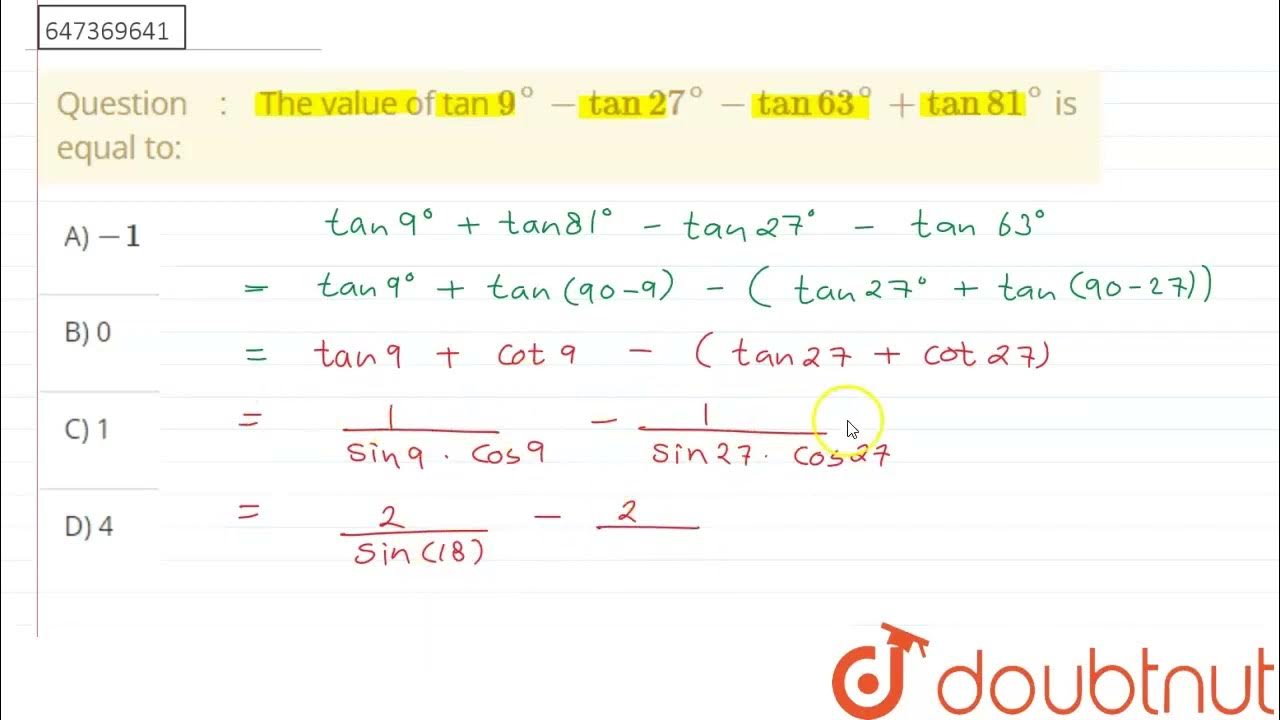 647369641
Question : The value of tan 9° − tan 27° − tan 63° + tan 81° is
equal to:
A) −1
B) 0
C) 1
D) 4
tan 9° + tan 81° − tan 27° − tan 63°
= tan 9° + tan (90-9) − ( tan 27° + tan (90-27))
= tan 9 + cot 9 − ( tan 27 + cot 27)
= 1 / sin 9 . cos 9 − 1 / sin 27 . cos 27
= 2 / sin (18) − 2
doubtnut